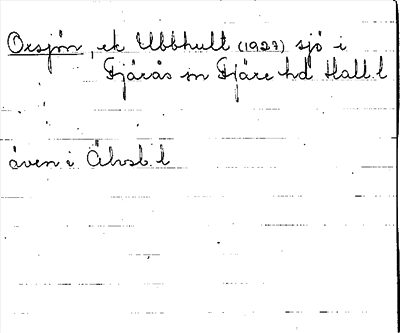 Oxsjön, ek Ubbhult (1927) sjö i
Fjärås sn Fjäre hd Hall l
även i Älvsb l